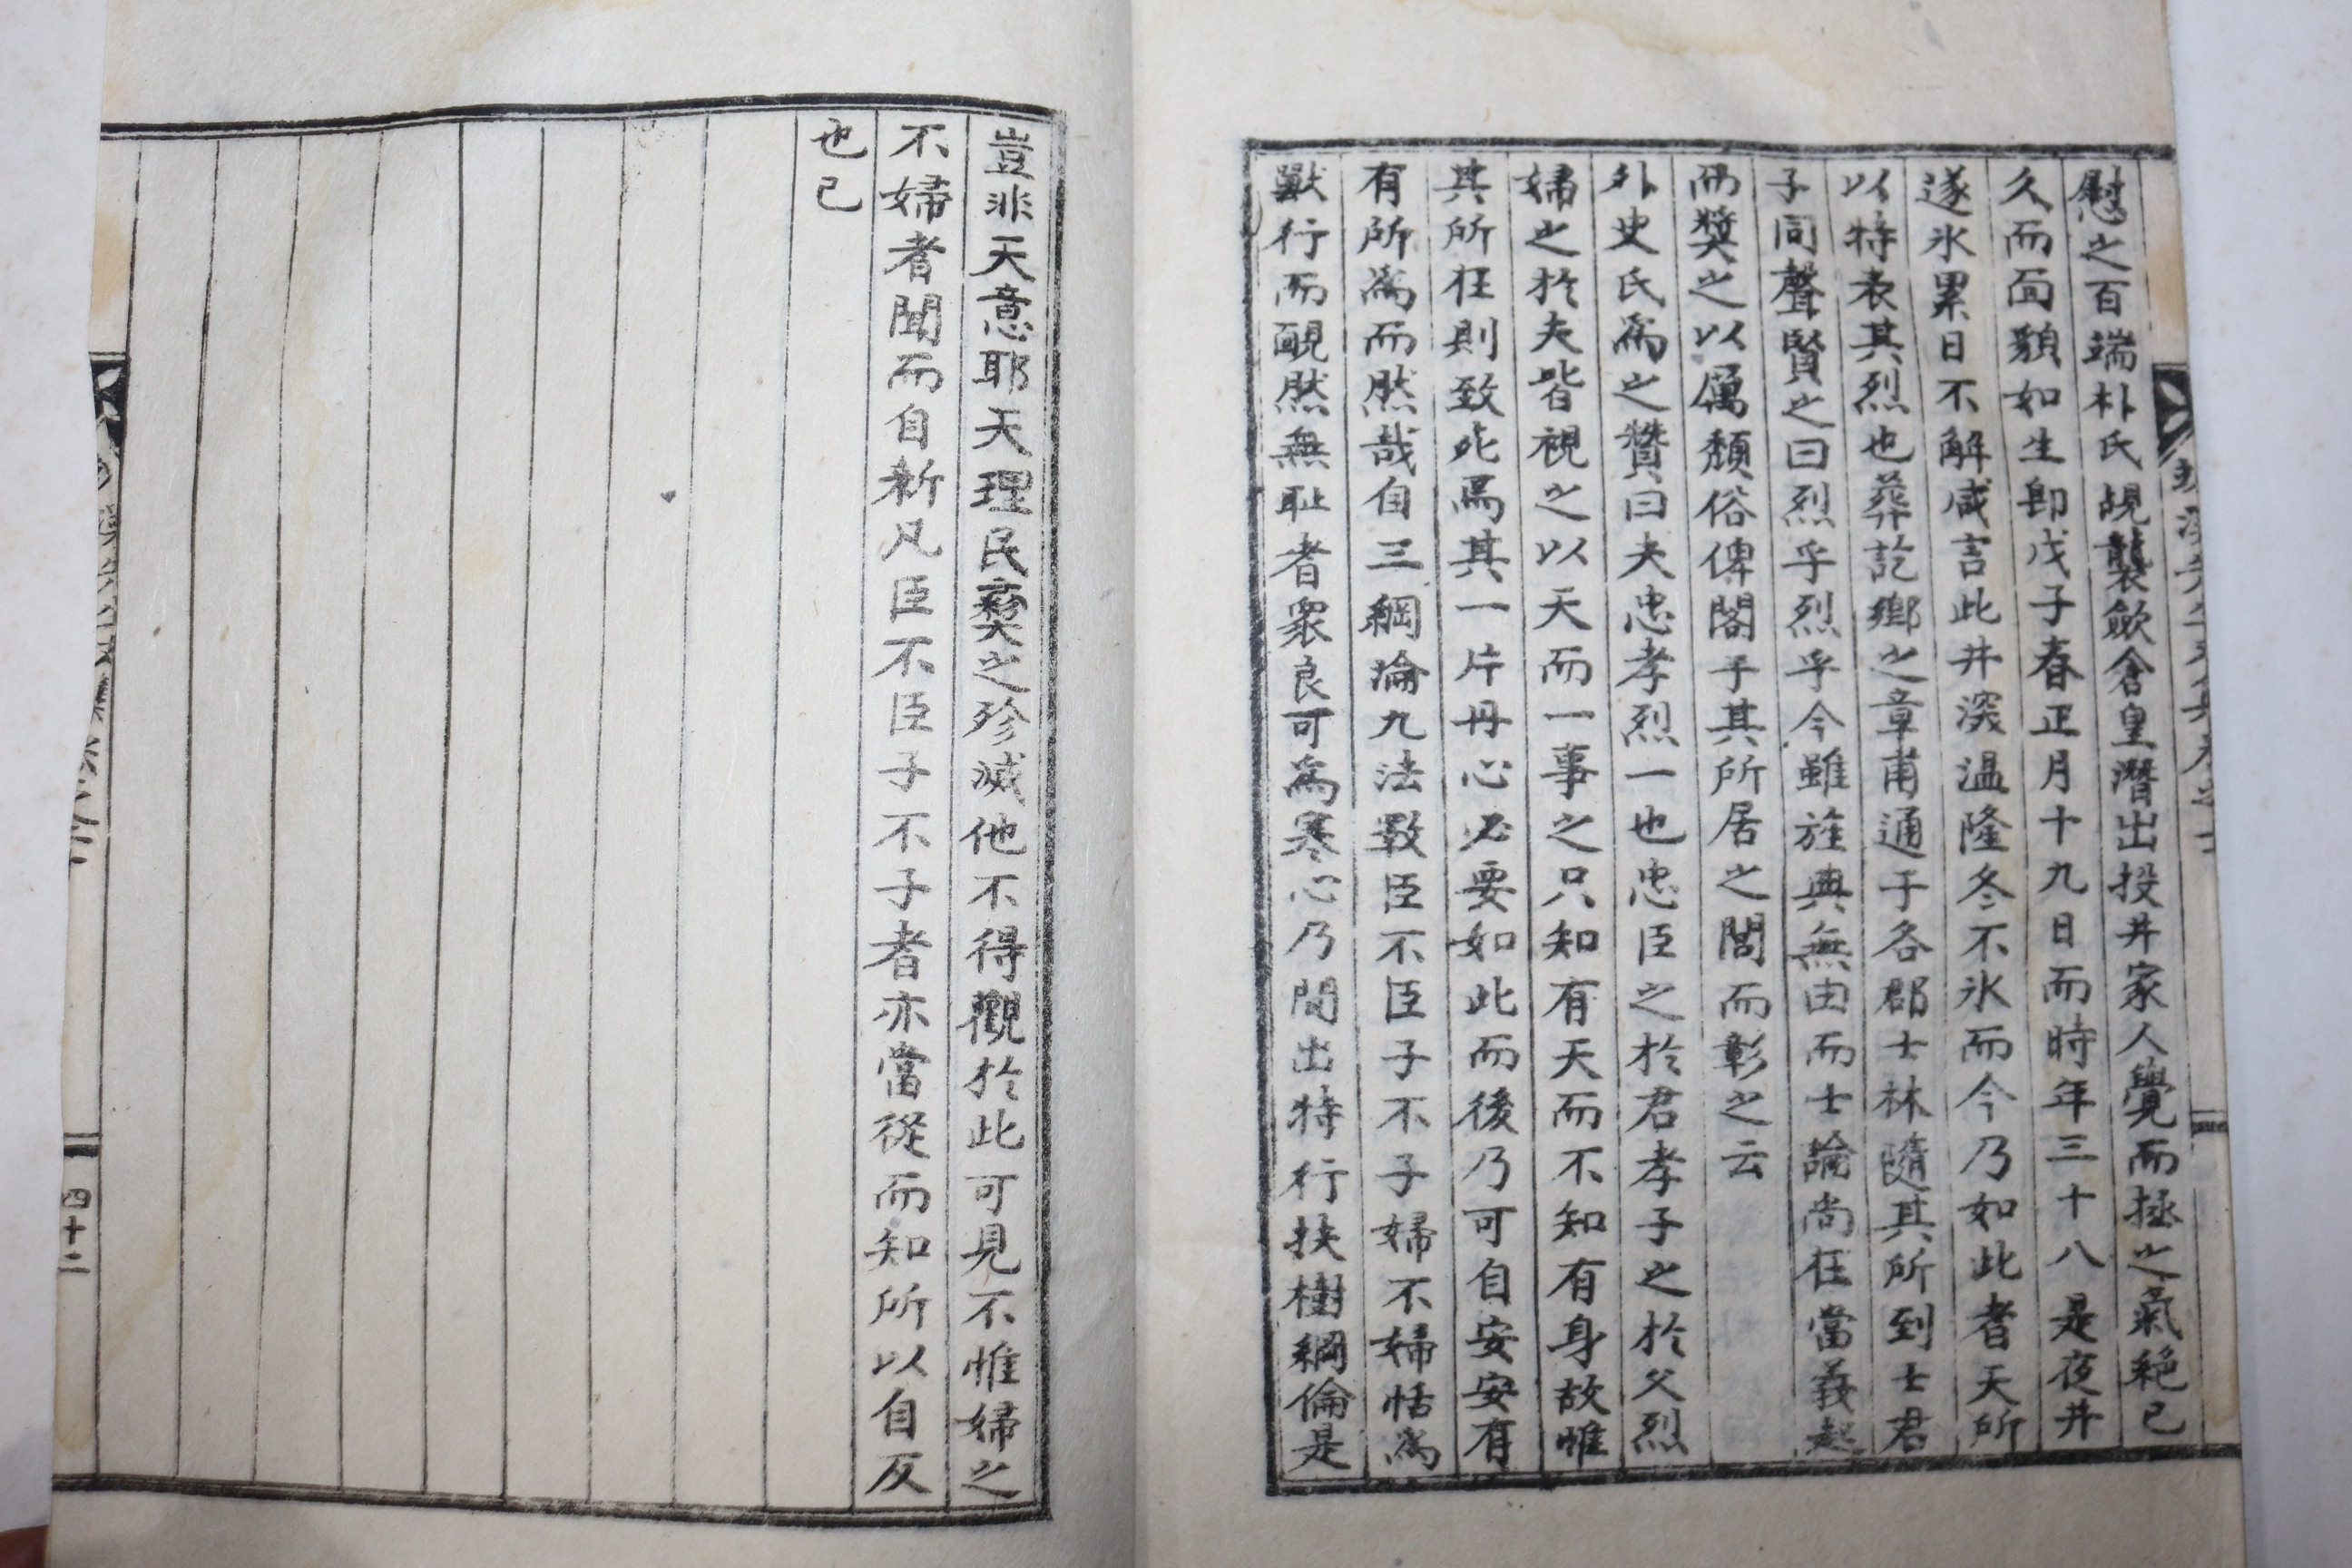 慰之百端朴氏覘襲歛倉皇潛出投井家人覺而拯之氣絕已
久而面顏如生卽戊子春正月十九日而時年三十八是夜井
遂氷累日不解咸言此井深溫隆冬不氷而今乃如此者天所
以特表其烈也葬訖鄉之章甫通于各郡士林隨其所到士君
子同聲賢之曰烈乎烈乎今雖旌典無由而士論尚在當義起
而獎之以厲頹俗俾閣于其所居之閭而彰之云
外史氏爲之贊曰夫忠孝烈一也忠臣之於君孝子之於父烈
婦之於夫皆視之以天而一事之只知有天而不知有身故惟
其所在則致死焉其一片丹心必要如此而後乃可自安安有
有所爲而然哉自三綱淪九法斁臣不臣子不子婦不婦恬爲
獸行而靦然無耻者衆良可爲寒心乃間出特行扶樹綱倫是
豈非天意耶天理民彛之殄滅他不得觀於此可見不惟婦之
不婦者聞而自新凡臣不臣子不子者亦當從而知所以自反
也已
四十二